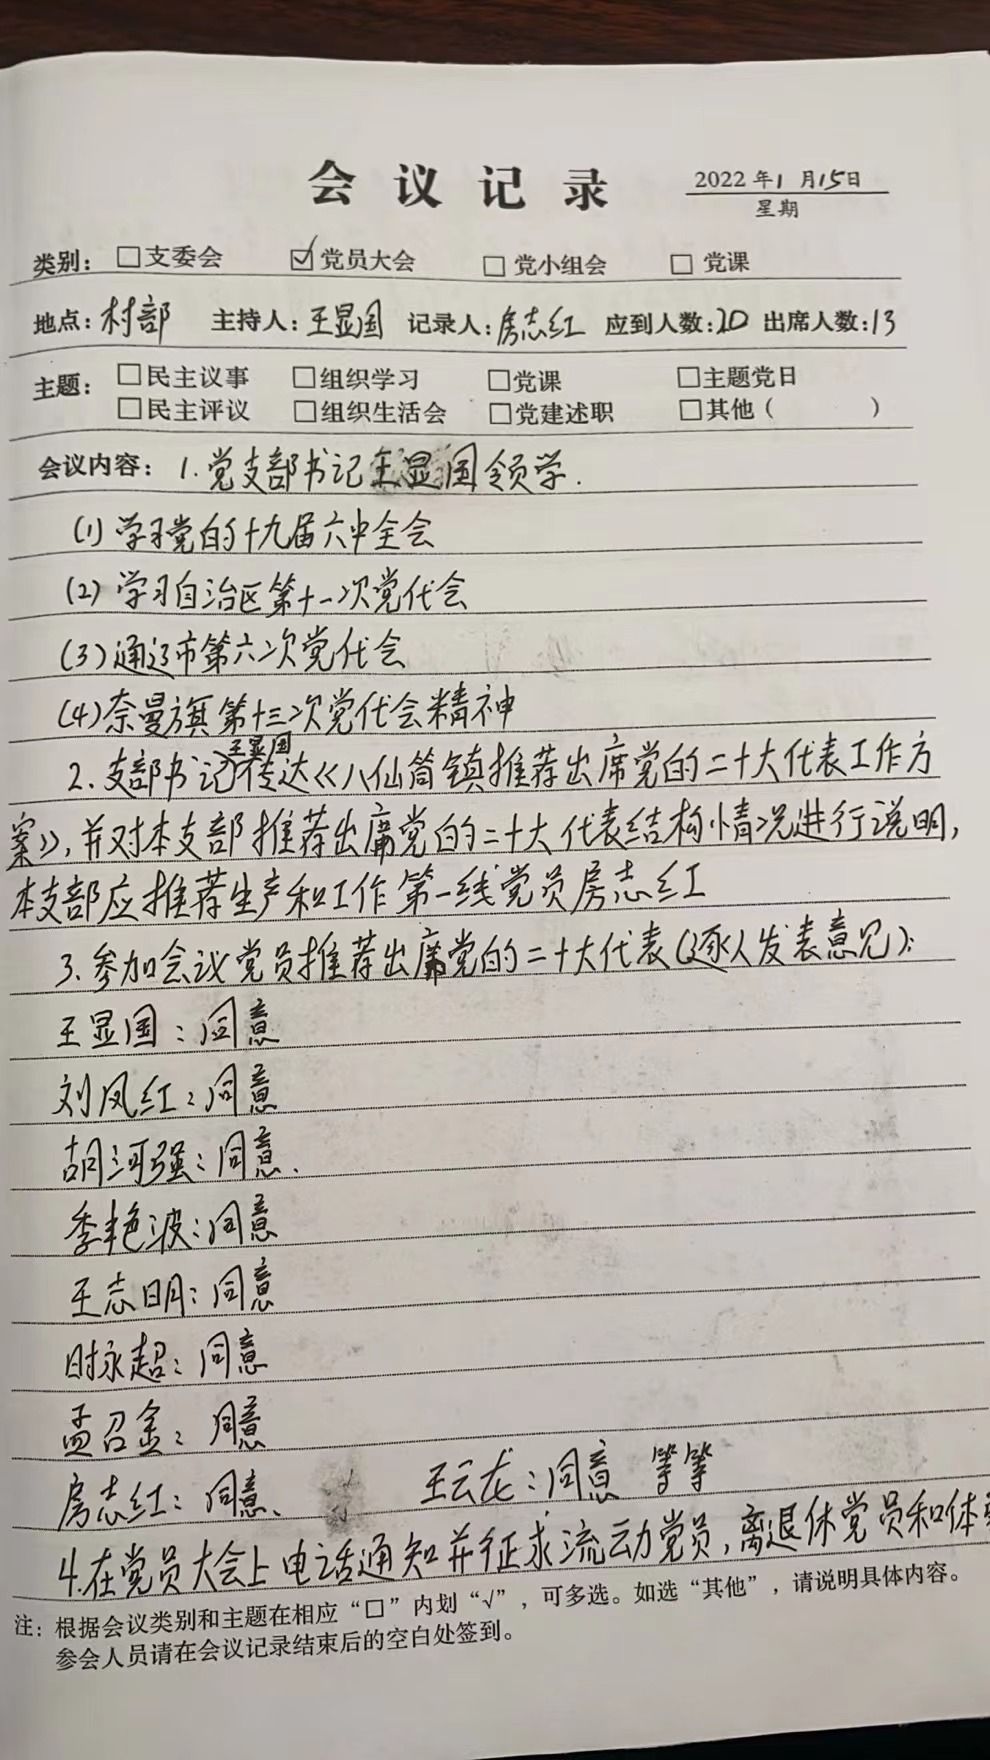 会议记录
2022年1月15日
星期
类别：□支委会 ☑党员大会 □党小组会 □党课
地点：村部 主持人：王显国 记录人：房志红 应到人数：20 出席人数：13
主题：□民主议事 □组织学习 □党课 □主题党日
□民主评议 □组织生活会 □党建述职 □其他（ ）
会议内容：1.党支部书记王显国领学.
(1)学习党的十九届六中全会
(2)学习自治区第十一次党代会
(3)通辽市第六次党代会
(4)奈曼旗第十三次党代会精神
2.支部书记王显国传达《八仙筒镇推荐出席党的二十大代表工作方
案》,并对本支部推荐出席党的二十大代表结构情况进行说明,
本支部应推荐生产和工作第一线党员房志红
3.参加会议党员推荐出席党的二十大代表(逐人发表意见):
王显国：同意
刘凤红：同意
胡河强：同意.
季艳波：同意
王志明：同意
时永超：同意
孟召金：同意
房志红：同意、 王云龙：同意 等等
4.在党员大会上电话通知并征求流动党员,离退休党员和体
注：根据会议类别和主题在相应“□”内划“√”，可多选。如选“其他”，请说明具体内容。
参会人员请在会议记录结束后的空白处签到。